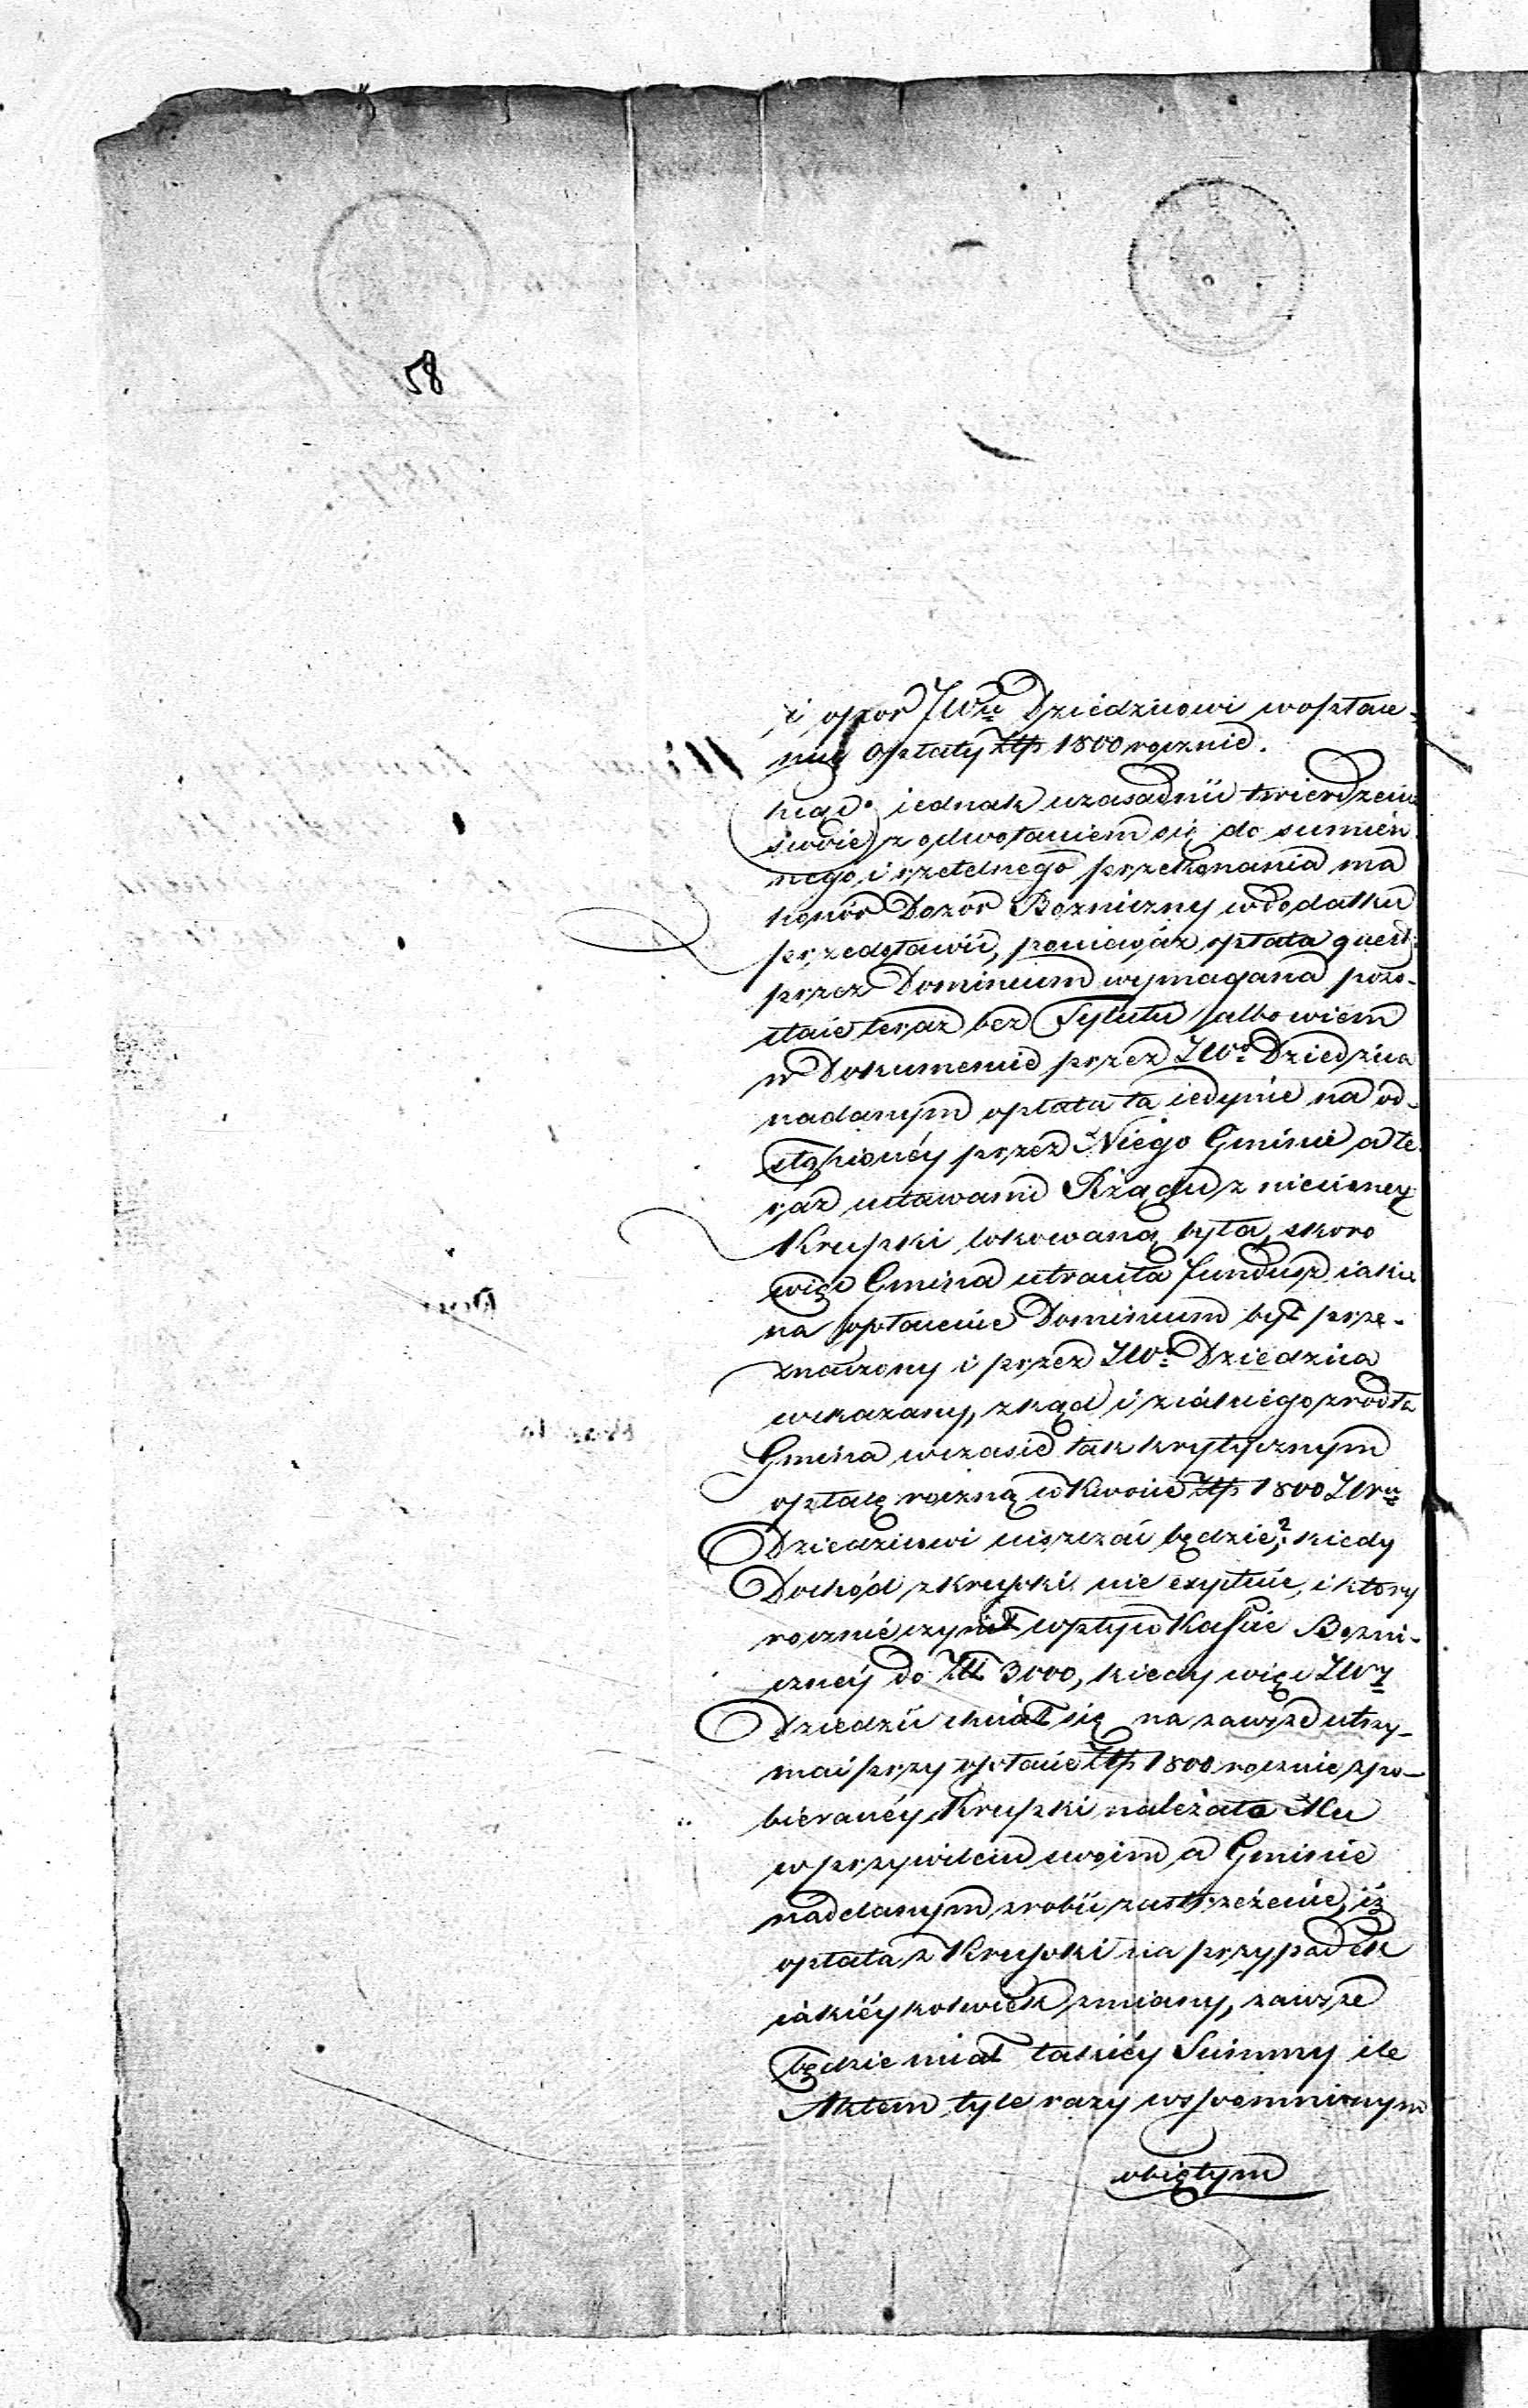 58
i opor JWu Dziedzicowi w opłace-
niu Opłaty Złp 1800 rocznie.
Chcąc iednak uzasadnić twierdzenie
swoie z odwołaniem się do sumien
nego i rzetelnego przekonania ma
honor Dozór Bozniczny w dodatku
przedstawić, ponieważ opłata quest:
przez Dominium wymagana pozo-
staie teraz bez Tytułu albowiem
w Dokumencie przez JWo Dziedzica
nadanym opłata ta iedynie na od-
stąpionéy przez Niego Gminie a te
raz ustawami Rządu zniesioney
Krupki lokowaną była, skoro
więc Gmina utraciła fundusz iaki
na opłacenie Dominium był prze-
znaczony i przez JWo Dziedzica
wskazany, zkąd i z iakiego zrodła
Gmina w czasie tak krytycznym
opłatę roczną w Kwocie Złp 1800 JWu
Dziedzicowi uiszczać będzie,? kiedy
Dochód z Krupki nie exystuie, i który
rocznie czynił wpływ Kassie Bozni-
cznéy do Złł 3000, kiedy więc JWy
Dziedzic chciał się na zawsze utrzy-
mać przy opłacie Złp 1800 rocznie z po-
bieranéy Krupki należało Mu
w przywileiu swoim a Gminie
nadanym zrobić zastrzeżenie, iż
opłata z Krupki na przypadek
iakiéykolwiek zmiany, zawsze
będzie miał takiéy Summy ile
Aktem tyle razy wspomnionym
obiętym